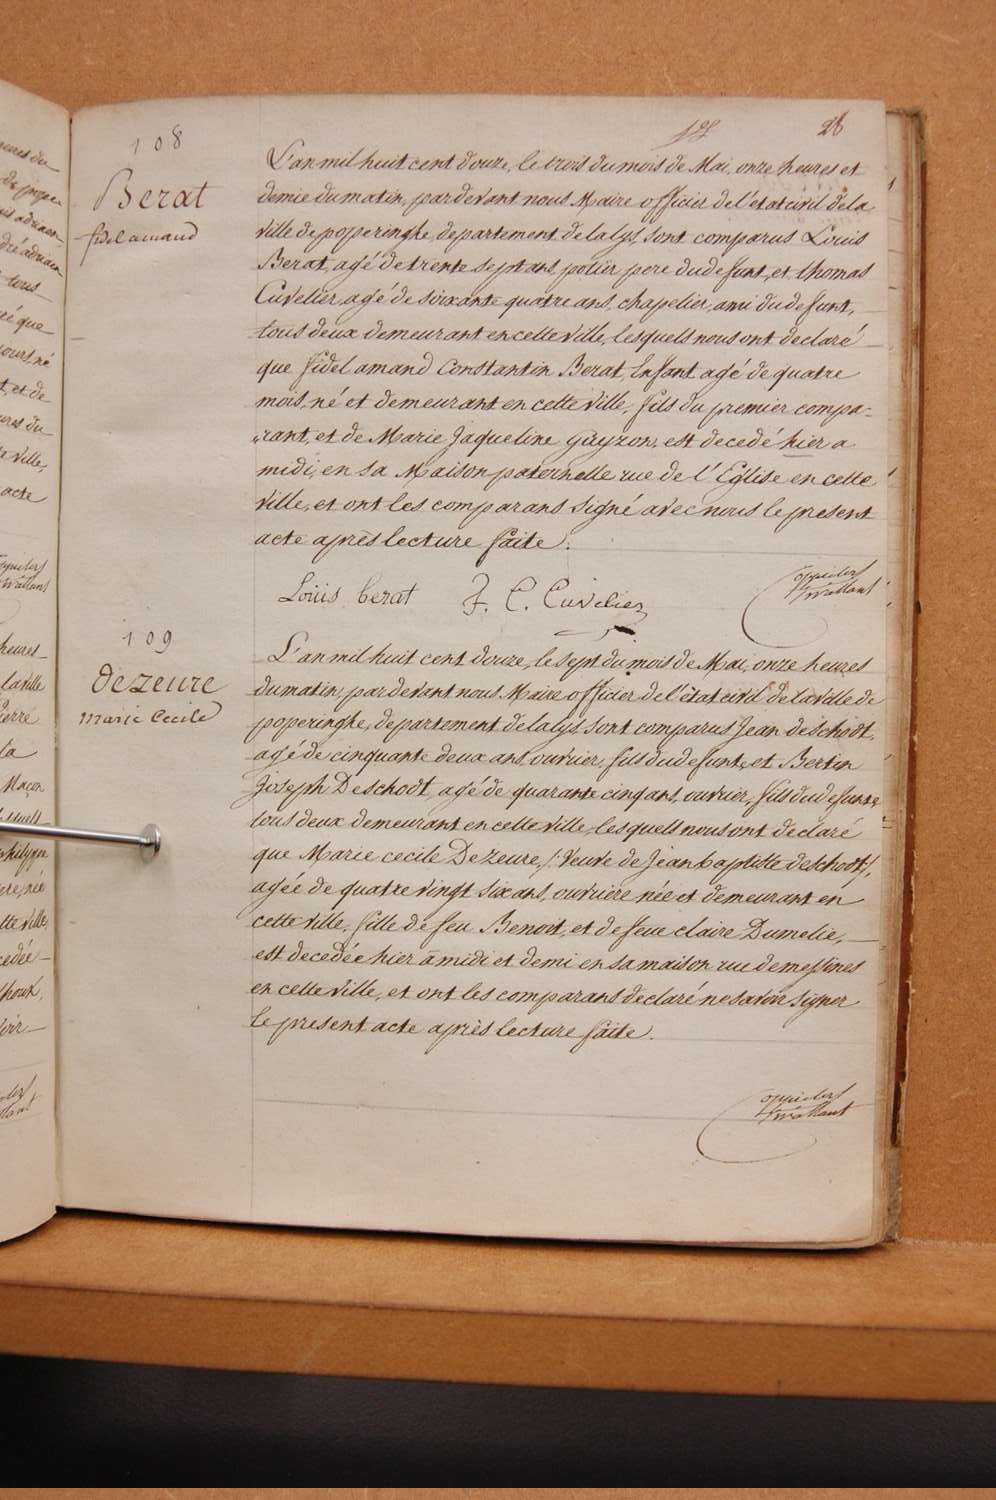 28
108
Berat
fidel amand
L'an mil huit cent douze, le trois du mois de Mai, onze heures et
demie du matin, pardevant nous Maire officier de l'état civil de la
ville de poperinghe, departement de la lys, sont comparus Louis
Berat, agé de trente sept ans, potier, pere du defunt, et thomas
Cuvelier, agé de soixante quatre ans, chapelier, ami du defunt,
tous deux demeurant en cette ville, lesquels nous ont declaré
que fidel amand Constantin Berat, Enfant agé de quatre
mois, né et demeurant en cette ville, fils du premier compa-
rant, et de Marie Jaqueline Guyzon, est decedé hier a
midi, en sa Maison paternelle rue de l'Eglise en cette
ville, et ont les comparans signé avec nous le present
acte après lecture faite.
Loüis berat J. C. Cuvelier
109
dezeure
marie Cecile
L'an mil huit cent douze, le sept du mois de Mai, onze heures
du matin, pardevant nous Maire officier de l'état civil de la ville de
poperinghe, departement de la lys sont comparus Jean deschodt,
agé de cinquante deux ans, ouvrier, fils du defunte, et Bertin
Joseph Deschodt, agé de quarante cinq ans, ouvrier, fils du defunte,
tous deux demeurant en cette ville, lesquels nous ont declaré
que Marie cecile Dezeure, /: veuve de Jean baptiste deschodt :/,
agée de quatre vingt six ans, ouvriere née et demeurant en
cette ville, fille de feu Benoit, et de feue claire Dumelie,
est decedée hier a midi et demi en sa maison rue de messines
en cette ville, et ont les comparans declaré ne savoir signer
le present acte après lecture faite.